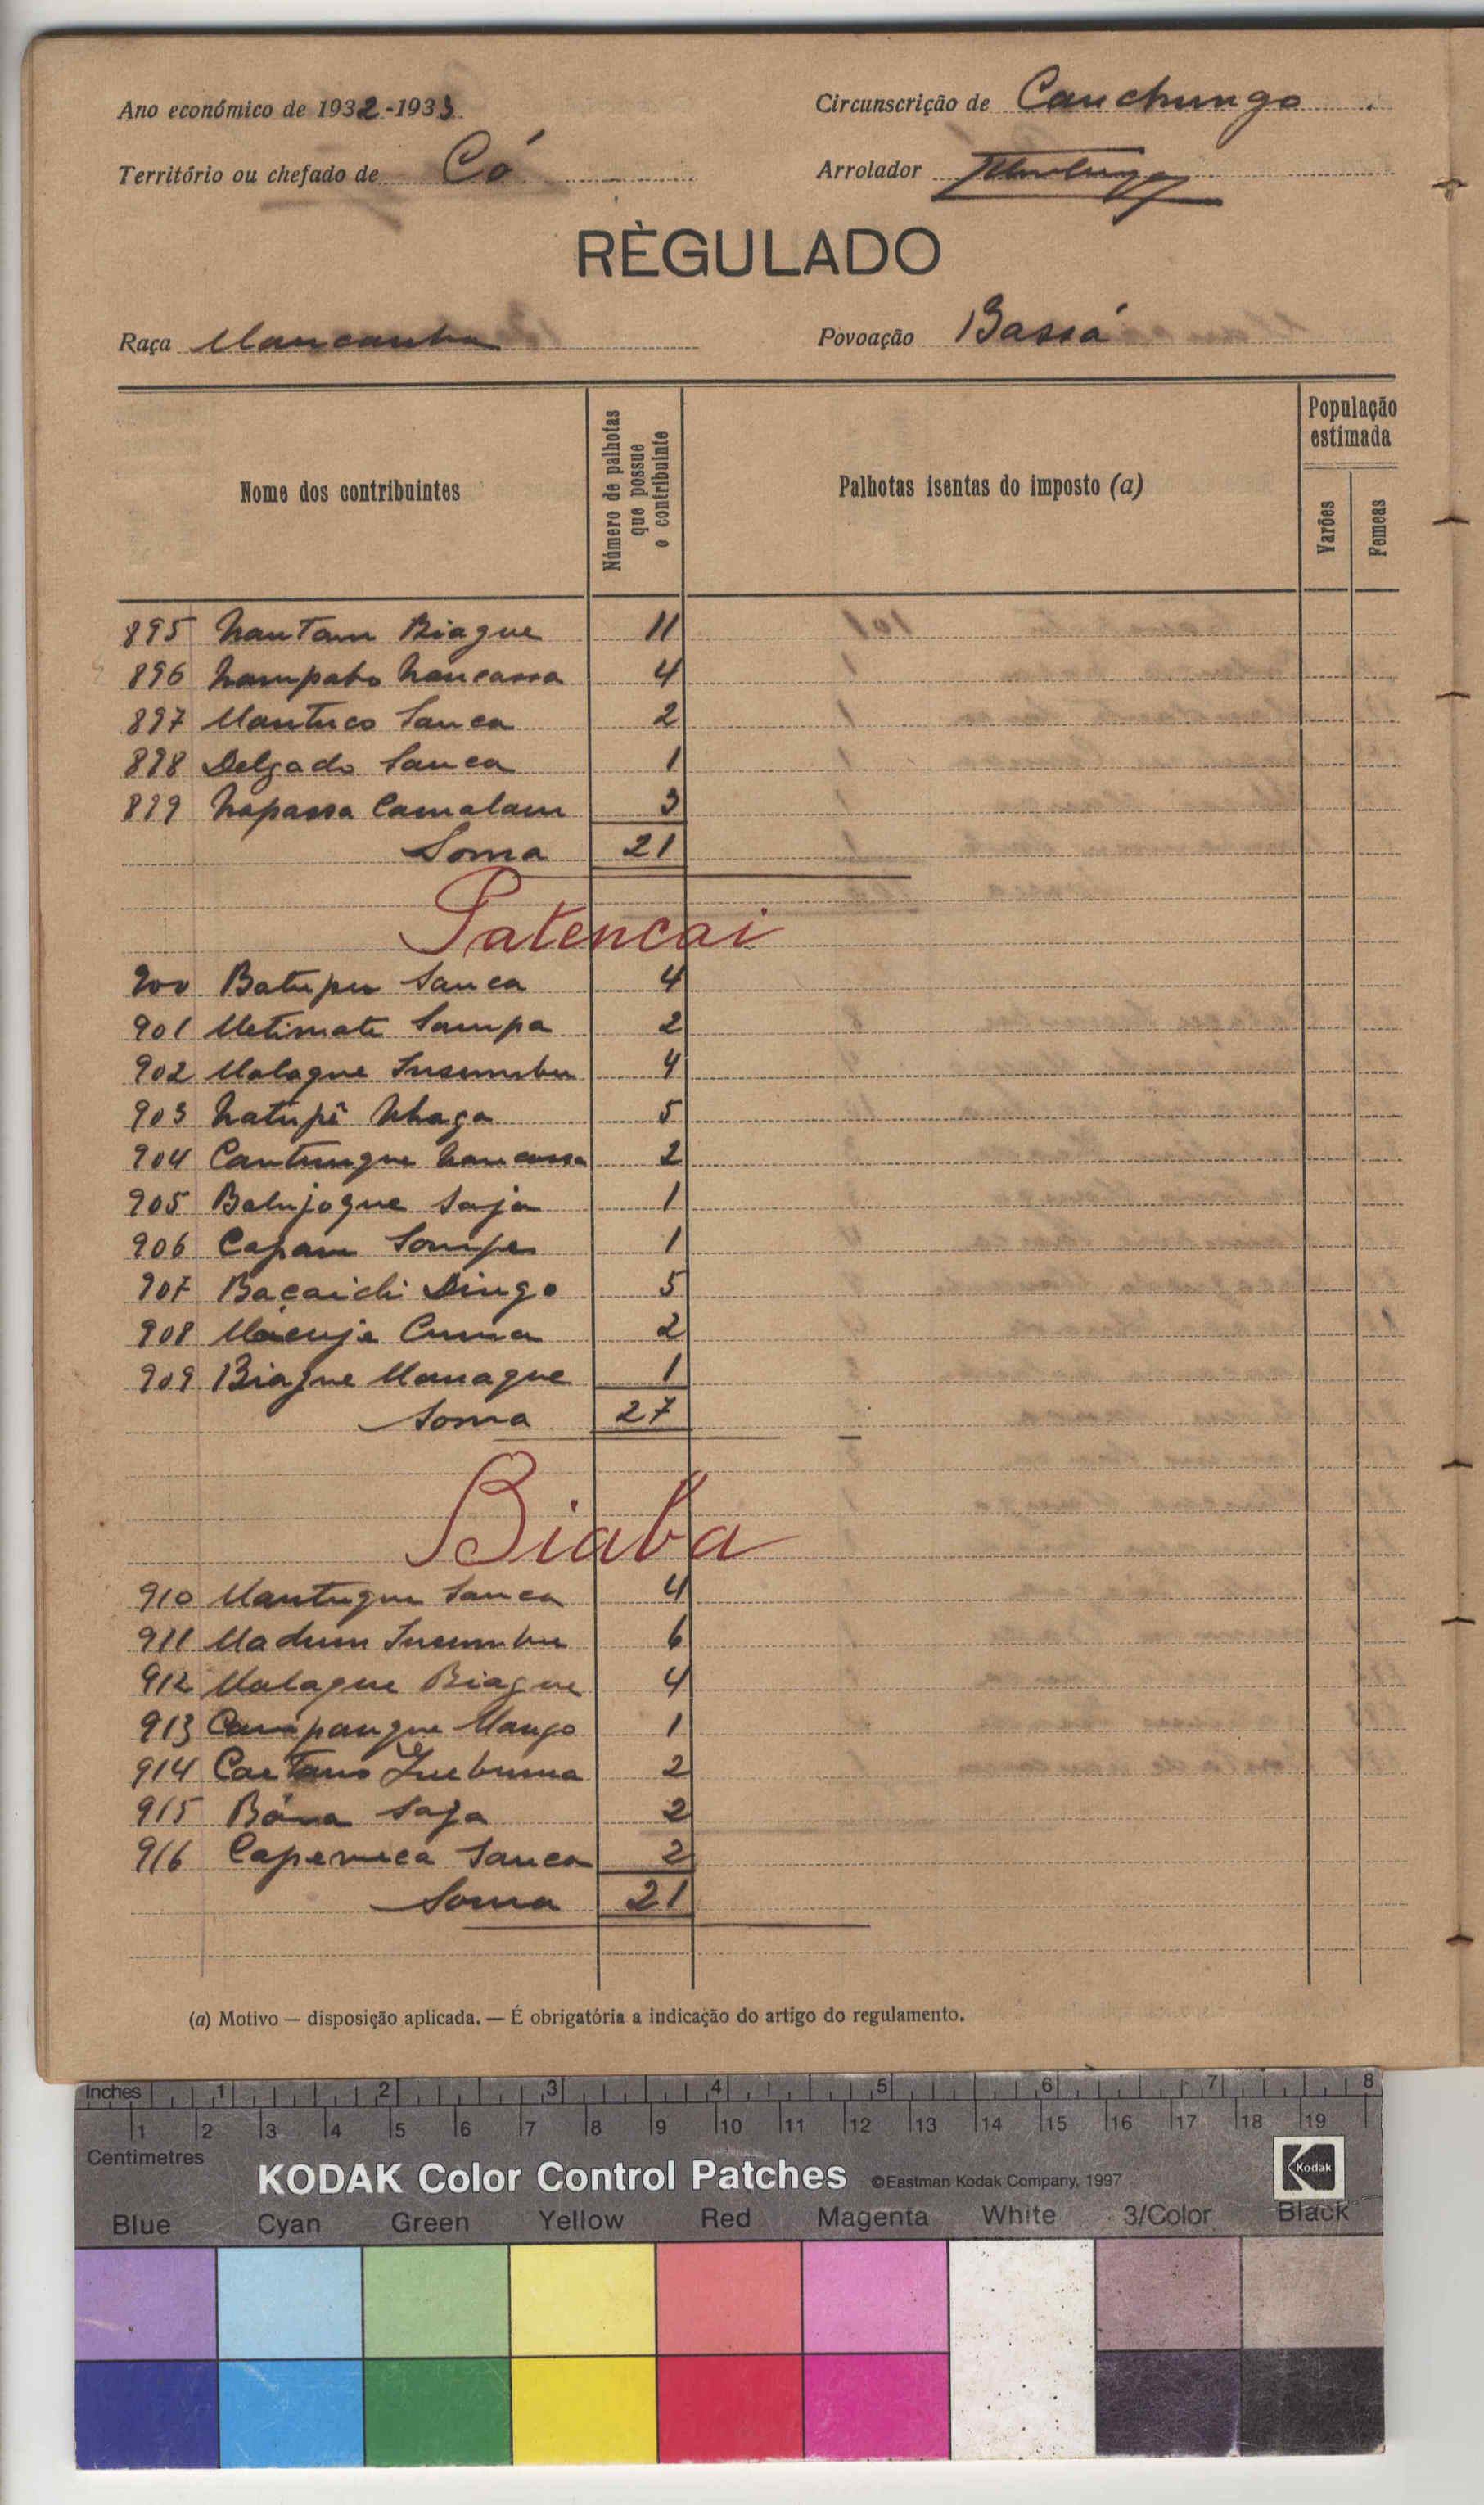 Ano económico de 1932-1933
Circunscrição de Canchungo
Território ou chefado de Có
Arrolador
RÈGULADO
Raça Mancanha
Povoação Bassá
Nome dos contribuintes
Número de palhotas que possue o contribuinte
Palhotas isentas do imposto (a)
População estimada
Varões
Femeas
895 NanTam Biague 11
896 Nampabo Nancassa 4
897 Mantuco Sanca 2
898 Delgado Sanca 1
899 Napassa Camalam 3
Soma 21
Patencai
900 Batupu Sanca 4
901 Metimate Sampa 2
902 Malague Insumbu 4
903 Natupê Nhaga 5
904 Cantungue Nancassa 2
905 Batujogue Saja 1
906 Capam 1
907 Bacaichi Dingo 5
908 Cuma 2
909 Biague Manague 1
Soma 27
Biaba
910 Mantugue Sanca 4
911 Madum Insumbu 6
912 Malague Biague 4
913 Campangue Mango 1
914 Caetano 2
915 Saja 2
916 Sanca 2
Soma 21
(a) Motivo — disposição aplicada. — É obrigatória a indicação do artigo do regulamento.
Inches 1 2 3 4 5 6 7 8
1 2 3 4 5 6 7 8 9 10 11 12 13 14 15 16 17 18 19
Centimetres
KODAK Color Control Patches ©Eastman Kodak Company, 1997 Kodak
Blue Cyan Green Yellow Red Magenta White 3/Color Black